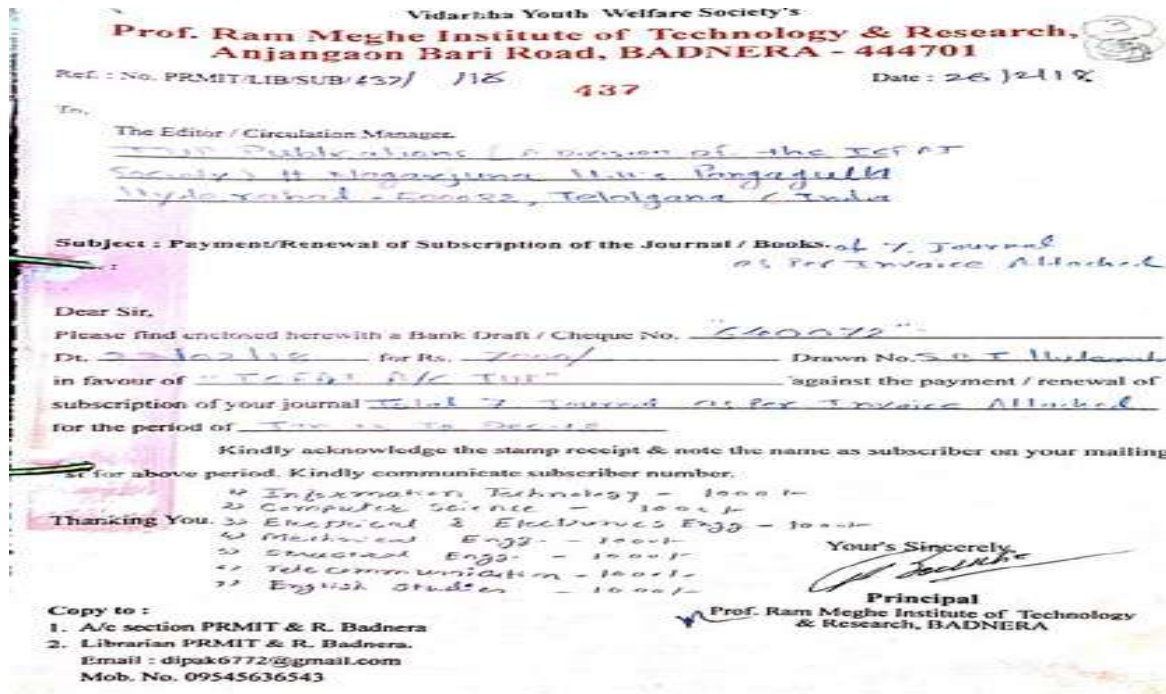 Vidarbha Youth Welfare Society's
Prof. Ram Meghe Institute of Technology & Research,
Anjangaon Bari Road, BADNERA - 444701
3
Ref. : No. PRMIT/LIB/SUB/437/ /18
437
Date : 26/2/18
To,
The Editor / Circulation Manager,
IUP Publications ( A Division of the ICFAI
Society) # Nagarjuna Hills Pangagutta
Hyderabad - 500082, Telalgana ( India
Subject : Payment/Renewal of Subscription of the Journal / Books. of 7 Journal
as Per Invoice Attached
Dear Sir,
Please find enclosed herewith a Bank Draft / Cheque No. "640072"
Dt. 22/02/18 for Rs. 7000/ Drawn No. S B I
in favour of "ICFAI A/C IUP" against the payment / renewal of
subscription of your journal Total 7 Journal as Per Invoice Attached
for the period of Jan to Dec-18
Kindly acknowledge the stamp receipt & note the name as subscriber on your mailing
st for above period. Kindly communicate subscriber number.
1) Information Technology - 1000/-
2) Computer Science - 1000/-
Thanking You. 3) Electrical & Electronics Engg - 1000/-
4) Mechanical Engg. - 1000/-
5) Structural Engg. - 1000/-
6) Telecommunication - 1000/-
7) English Studies - 1000/-
Your's Sincerely,
Principal
Prof. Ram Meghe Institute of Technology
& Research, BADNERA
Copy to :
1. A/c section PRMIT & R. Badnera
2. Librarian PRMIT & R. Badnera.
Email : dipak6772@gmail.com
Mob. No. 09545636543